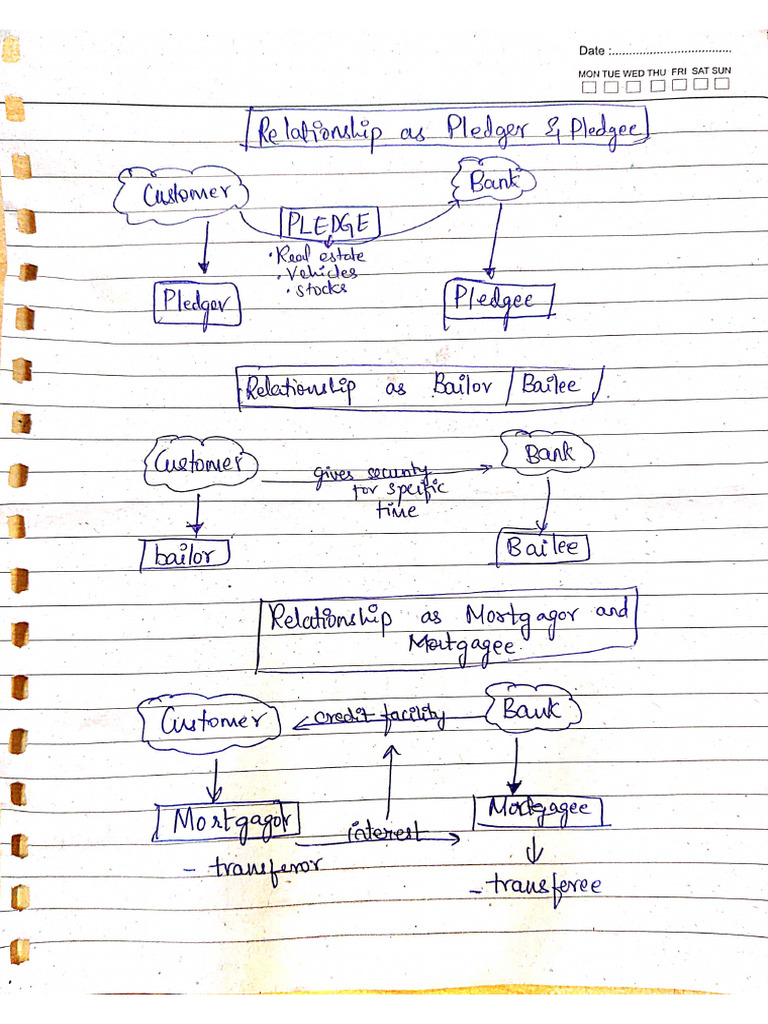 Date :..................................
MON TUE WED THU FRI SAT SUN
Relationship as Pledger & Pledgee
Customer
Bank
PLEDGE
• Real estate
• Vehicles
• stocks
Pledger
Pledgee
Relationship as Bailor / Bailee
Customer
gives security
for specific
time
Bank
bailor
Bailee
Relationship as Mortgagor and
Mortgagee.
Customer
credit facility
Bank
Mortgagor
interest
Mortgagee
- transferor
- transferee